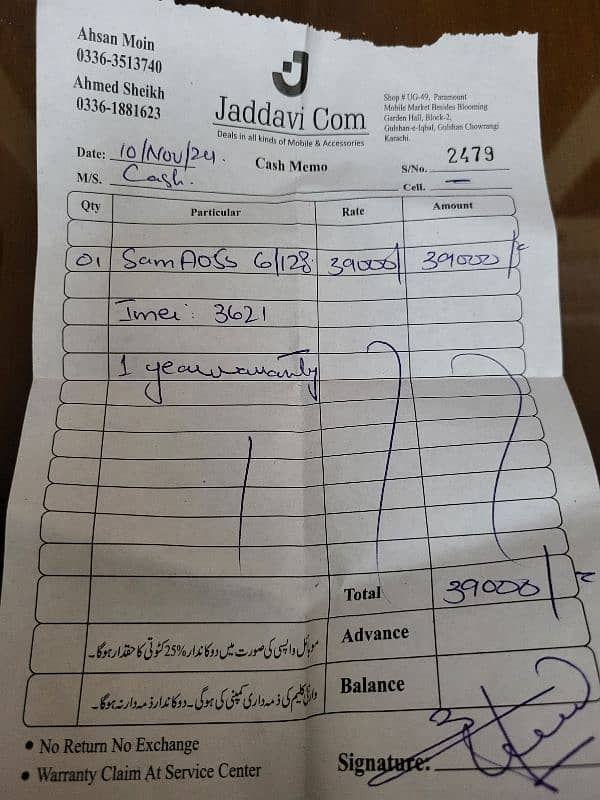 Ahsan Moin
0336-3513740
Ahmed Sheikh
0336-1881623
Jaddavi Com
Deals in all kinds of Mobile & Accessories
Shop # UG-49, Paramount
Mobile Market Besides Blooming
Garden Hall, Block-2,
Gulshan-e-Iqbal, Gulshan Chowrangi
Karachi.
Date: 10/Nov/24.
Cash Memo
S/No. 2479
M/S. Cash.
Cell. —
Qty Particular Rate Amount
01 Sam A05s 6/128 39000/ 39000/
Imei: 3621
1 year warranty
Total 39000/
موبائل واپسی کی صورت میں دوکاندار 25% کٹوتی کا حقدار ہوگا۔
Advance
وارنٹی کلیم کی ذمہ داری کمپنی کی ہوگی۔ دوکاندار ذمہ دار نہ ہوگا۔
Balance
• No Return No Exchange
• Warranty Claim At Service Center
Signature: